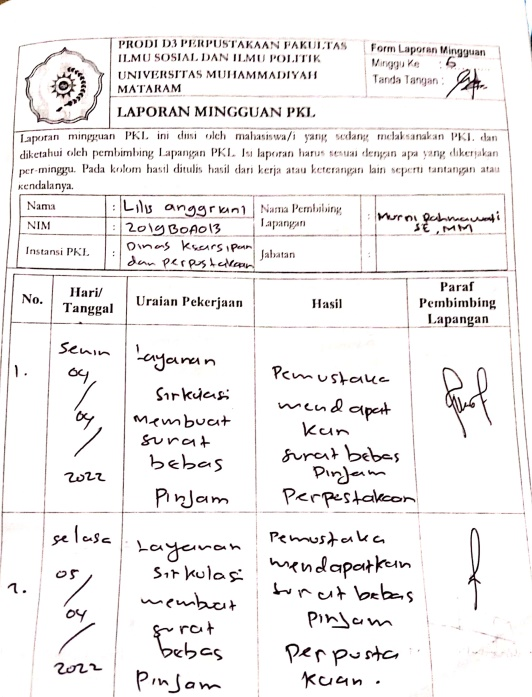 PRODI D3 PERPUSTAKAAN FAKULTAS
ILMU SOSIAL DAN ILMU POLITIK
UNIVERSITAS MUHAMMADIYAH
MATARAM
LAPORAN MINGGUAN PKL
Form Laporan Mingguan
Minggu Ke : 6
Tanda Tangan :
Laporan mingguan PKL ini diisi oleh mahasiswa/i yang sedang melaksanakan PKL dan
diketahui oleh pembimbing Lapangan PKL. Isi laporan harus sesuai dengan apa yang dikerjakan
per-minggu. Pada kolom hasil ditulis hasil dari kerja atau keterangan lain seperti tantangan atau
kendalanya.
Nama : Lilis anggriani
NIM : 2019B0A013
Instansi PKL : Dinas Kearsipan
dan perpustakaan
Nama Pembibing
Lapangan : Murni Rahmawati
SE, MM
Jabatan :
No. Hari/ Tanggal Uraian Pekerjaan Hasil Paraf Pembimbing Lapangan
1.
Senin
04
/
04
/
2022
Layanan
Sirkulasi
Membuat
surat
bebas
Pinjam
Pemustaka
mendapat
kan
surat bebas
Pinjam
Perpestakaan
2.
selasa
05
/
04
/
2022
Layanan
Sirkulasi
membuat
surat
bebas
Pinjam
Pemustaka
mendapatkan
surat bebas
Pinjam
perpusta
kaan.